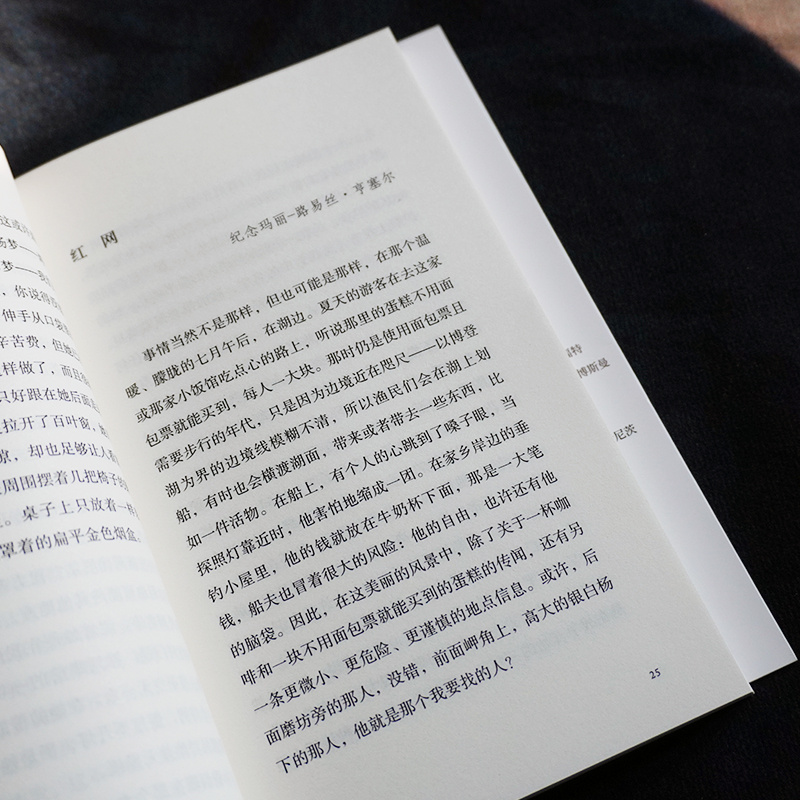 这或许
梦——
梦——我
，你说得
伸手从口袋
辛苦费，但她
样做了，而且
只好跟在她后面
拉开了百叶窗，
凉，却也足够让人
周围摆着几把椅子
。桌子上只放着一
罩着的扁平金色烟盒
红 网
纪念玛丽-路易丝·亨塞尔
事情当然不是那样，但也可能是那样，在那个温
暖、朦胧的七月午后，在湖边。夏天的游客在去这家
或那家小饭馆吃点心的路上，听说那里的蛋糕不用面
包票就能买到，每人一大块。那时仍是使用面包票且
需要步行的年代，只是因为边境近在咫尺——以博登
湖为界的边境线模糊不清，所以渔民们会在湖上划
船，有时也会横渡湖面，带来或者带去一些东西，比
如一件活物。在船上，有个人的心跳到了嗓子眼，当
探照灯靠近时，他害怕地缩成一团。在家乡岸边的垂
钓小屋里，他的钱就放在牛奶杯下面，那是一大笔
钱，船夫也冒着很大的风险：他的自由，也许还有他
的脑袋。因此，在这美丽的风景中，除了关于一杯咖
啡和一块不用面包票就能买到的蛋糕的传闻，还有另
一条更微小、更危险、更谨慎的地点信息。或许，后
面磨坊旁的那人，没错，前面岬角上，高大的银白杨
下的那人，他就是那个我要找的人？
25
特
博斯曼
尼茨